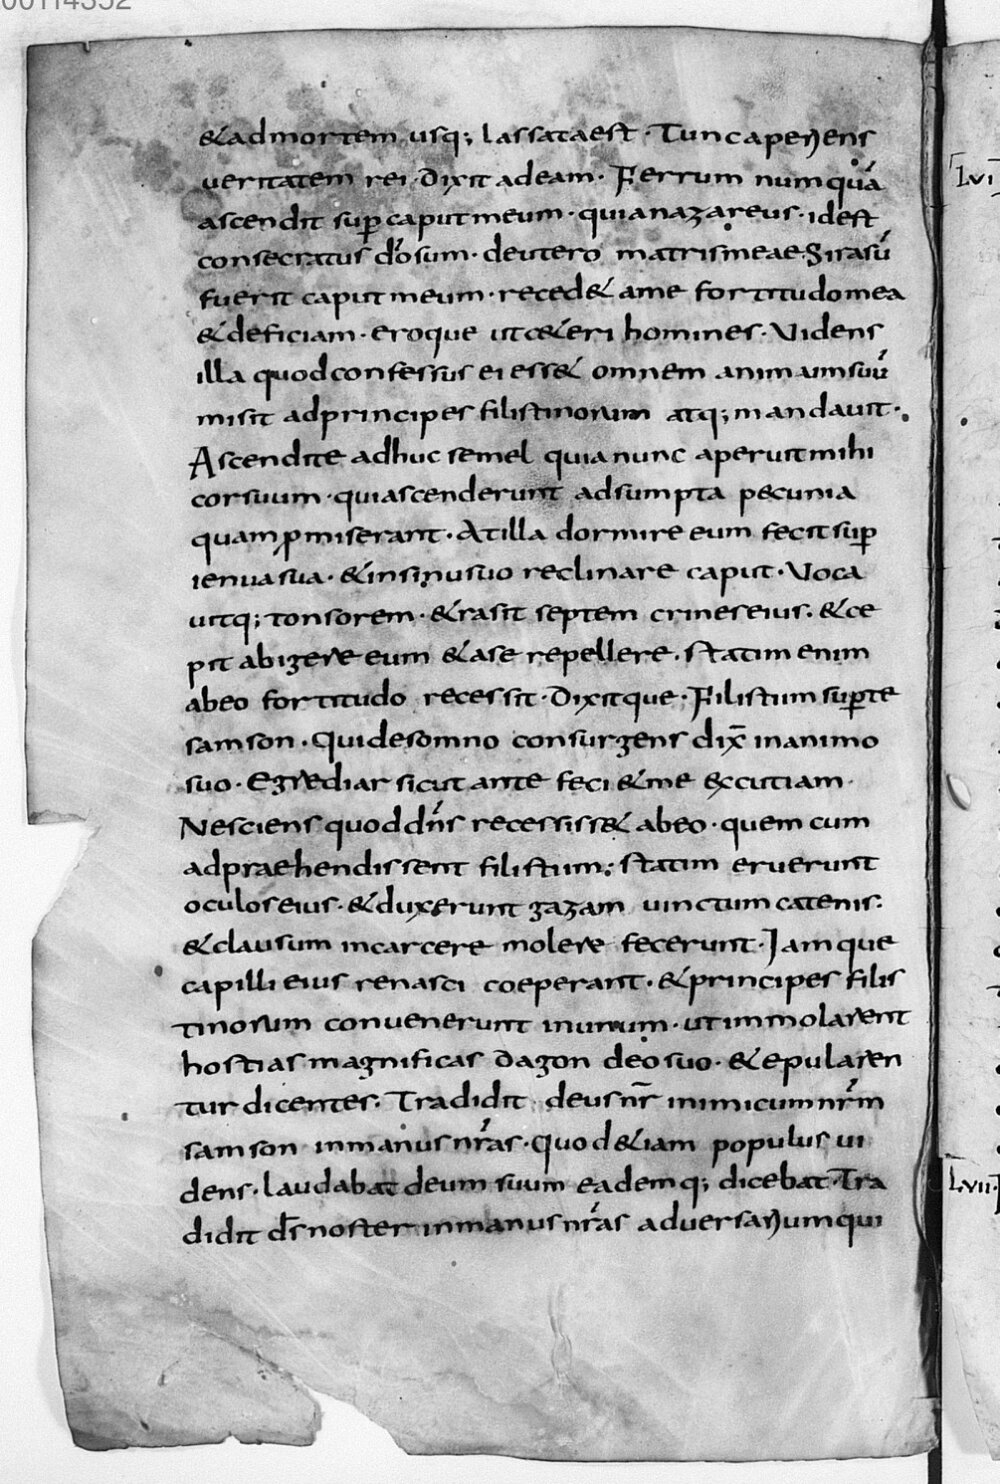 00114352
&ad mortem usq; lassata est · Tunc aperiens
ueritatem rei · dixit ad eam · Ferrum numquā
ascendit sup caput meum · quia nazareus · idest
consecratus dõ sum · deutero matris meae · Si rasū
fuerit caput meum · reced& a me fortitudo mea
& deficiam · eroque ut c&eri homines · Videns
illa quod confessus ei ess& omnem animum suū
misit ad principes filistinorum atq; mandauit ·
Ascendite adhuc semel quia nunc aperuit mihi
cor suum · qui ascenderunt adsumpta pecunia
quam ꝓmiserant · At illa dormire eum fecit sup
ienua sua · & in sinu suo reclinare caput · Voca
uitq; tonsorem · & rasit septem crines eius · & ce
pit abigere eum & a se repellere · statim enim
ab eo fortitudo recessit · Dixitque · Filistiim sup te
samson · Qui de somno consurgens dix̄ in animo
suo · Egrediar sicut ante feci & me excutiam ·
Nesciens quod dn̄s recessiss& ab eo · quem cum
adpraehendissent filistiim; statim eruerunt
oculos eius · & duxerunt gazam uinctum catenis ·
& clausum in carcere molere fecerunt · Iamque
capilli eius renasci coeperant · & principes filis
tinorum conuenerunt in unum · ut immolarent
hostias magnificas dagon deo suo · & epularen
tur dicentes · Tradidit deus nr̄ inimicum nr̄m
samson in manus nr̄as · quod &iam populus ui
dens · laudabat deum suum eademq; dicebat · Tra
didit ds̄ noster in manus nr̄as aduersarium qui
Lvi
Lvii